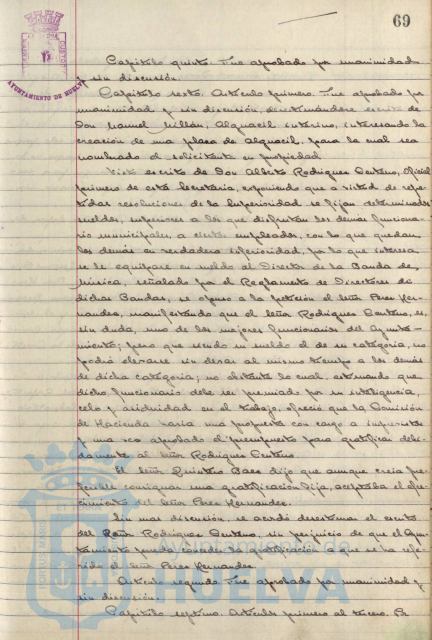 69
AYUNTAMIENTO DE HUELVA
Capítulo quinto. Fue aprobado por unanimidad
y sin discusión.
Capítulo sexto. Artículo primero. Fue aprobado por
unanimidad y sin discusión, desestimándose escrito de
Don Manuel Millán, Alguacil interino, interesando la
creación de una plaza de Alguacil, para la cual sea
nombrado el solicitante en propiedad.
Visto escrito de Don Alberto Rodriguez Centeno, oficial
primero de esta Secretaría, exponiendo que a virtud de repe-
tidas resoluciones de la Superioridad se fijan determinados
sueldos, superiores a los que disfrutan los demás funciona-
rios municipales, a ciertos empleados, con lo que quedan
los demás en verdadera inferioridad, por lo que interesa
se le equipare en sueldo al Director de la Banda de
música, señalado por el Reglamento de Directores de
dichas Bandas, se opuso a la petición el señor Perez Her-
nandez, manifestando que el señor Rodriguez Centeno, es,
sin duda, uno de los mejores funcionarios del Ayunta-
miento; pero que siendo su sueldo el de su categoría, no
podrá elevarse sin elevar al mismo tiempo a los demás
de dicha categoría; no obstante lo cual, estimando que
dicho funcionario debe ser premiado por su inteligencia,
celo y asiduidad en el trabajo, ofreció que la Comisión
de Hacienda haría una propuesta con cargo a imprevistos
y una vez aprobado el presupuesto para gratificar debi-
damente al señor Rodriguez Centeno.
El señor Quintero Baez dijo que aunque creía pre-
ferible consignar una gratificación fija, aceptaba el ofre-
cimiento del señor Perez Hernandez.
Sin mas discusión, se acordó desestimar el escrito
del señor Rodriguez Centeno, sin perjuicio de que el Ayun-
tamiento pueda conceder la gratificación a que se ha refe-
rido el señor Perez Hernandez.
Artículo segundo. Fue aprobado por unanimidad y
sin discusión.
Capítulo septimo. Artículos primero al tercero.
HUELVA